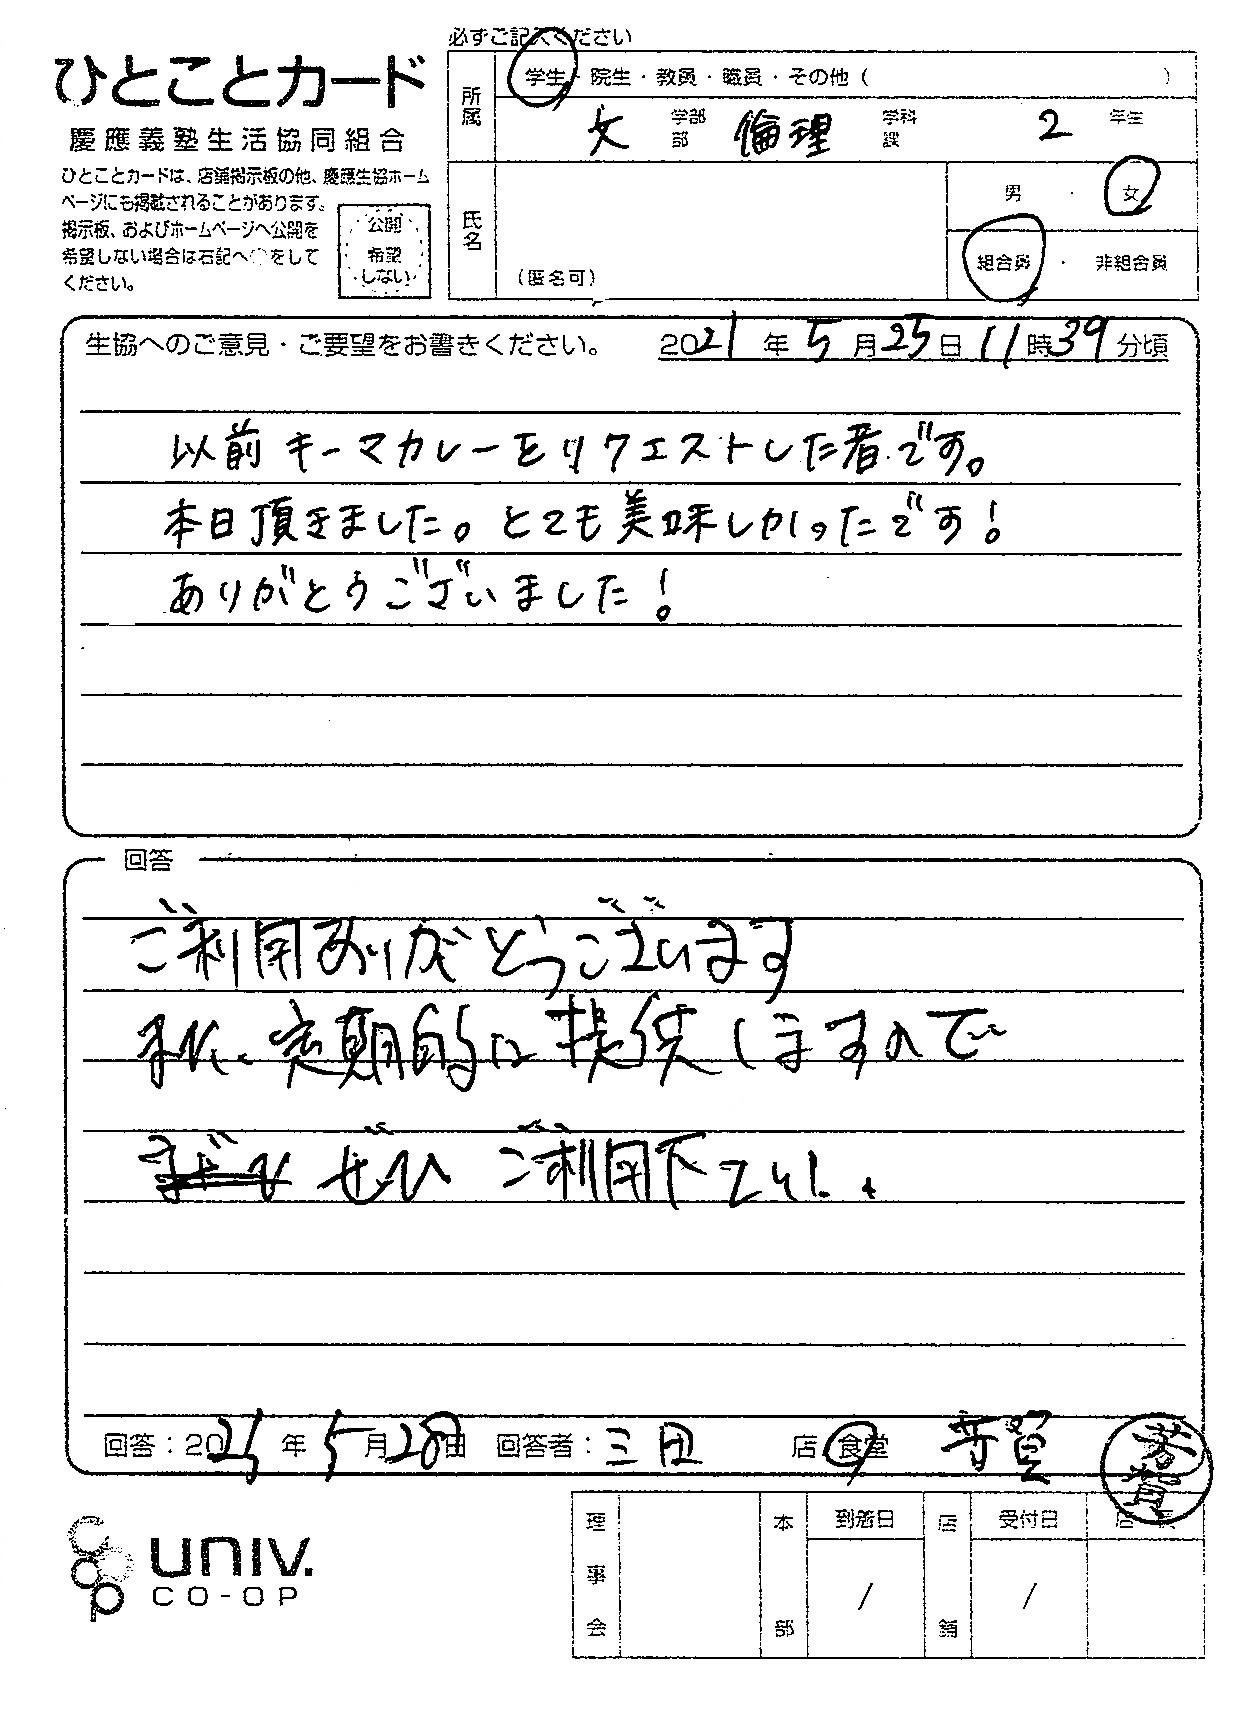 必ずご記入ください
ひとことカード
慶應義塾生活協同組合
ひとことカードは、店舗掲示板の他、慶應生協ホーム
ページにも掲載されることがあります。
掲示板、およびホームページへ公開を
希望しない場合は右記へ○をして
ください。
公開
希望
しない
所属
学生・院生・教員・職員・その他（ ）
文 学部 部 倫理 学科 課 2 年生
氏名
（匿名可）
男 ・ 女
組合員 ・ 非組合員
生協へのご意見・ご要望をお書きください。 2021年5月25日11時39分頃
以前キーマカレーをリクエストした者です。
本日頂きました。とても美味しかったです！
ありがとうございました！
回答
ご利用ありがとうございます
また、定期的に提供しますので
ぜひ ご利用下さい。
回答：2021年5月28日 回答者：三田 店 食堂 芳賀
芳賀
univ.
CO-OP
理事会
本部
到着日
/
店舗
受付日
/
店長